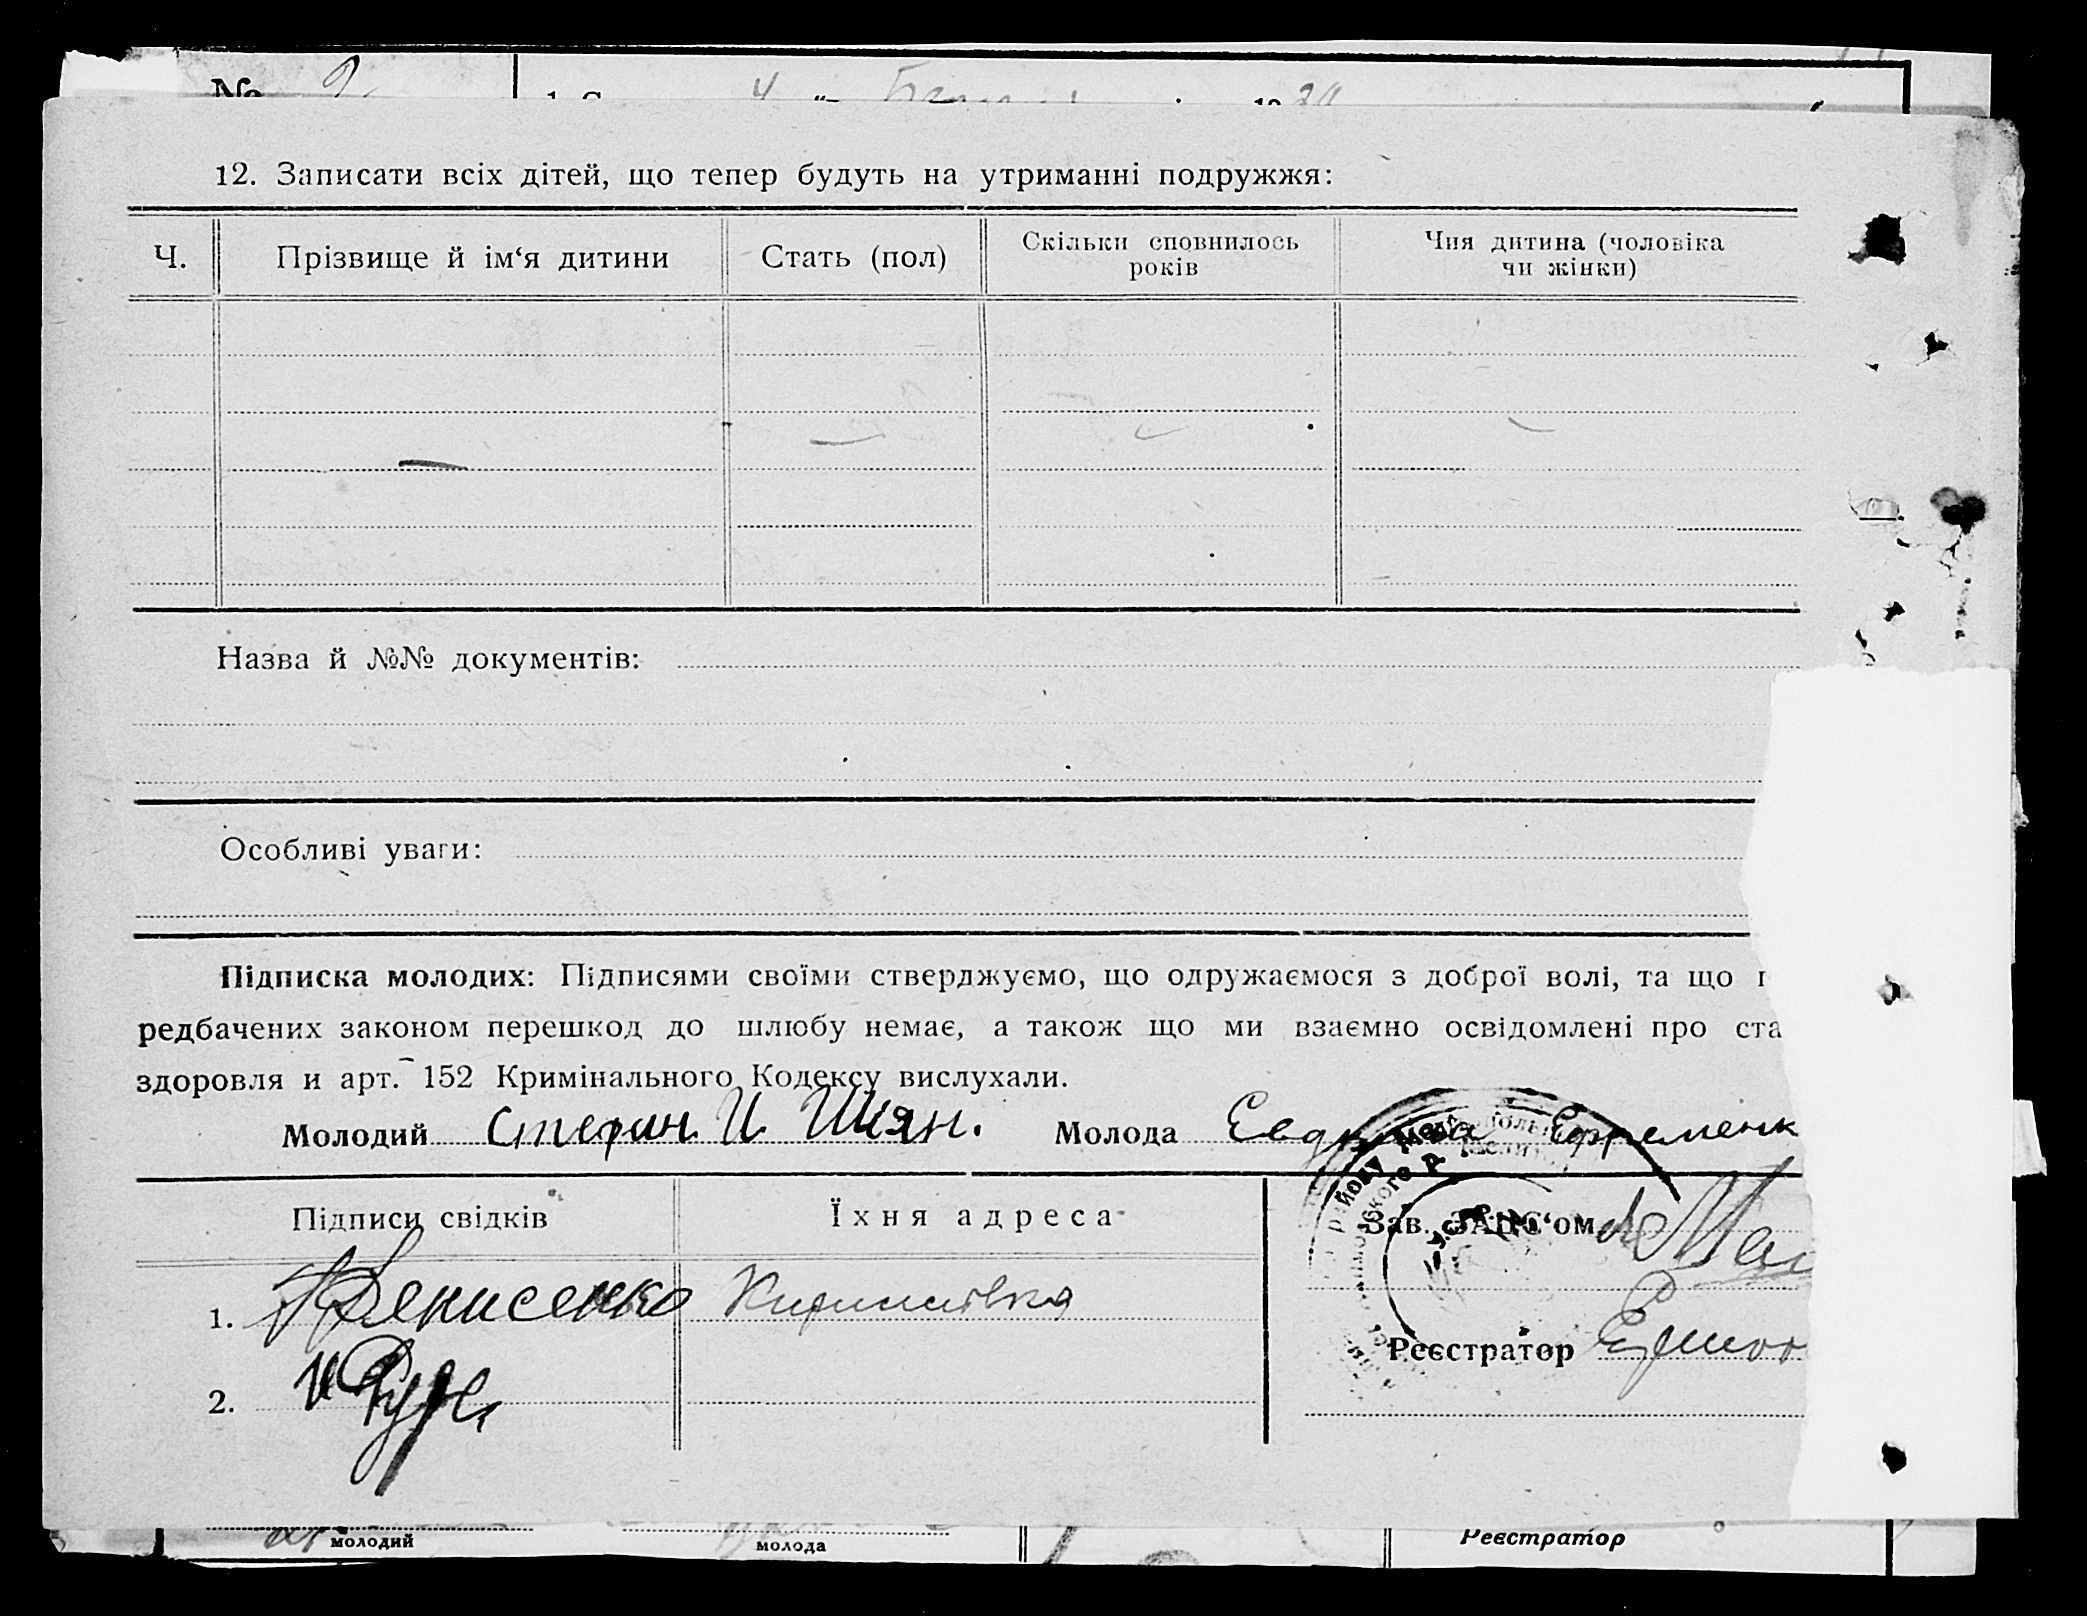 №
12. Записати всіх дітей, що тепер будуть на утриманні подружжя:
Ч. Прізвище й ім‘я дитини Стать (пол) Скільки сповнилось років Чия дитина (чоловіка чи жінки)
Назва й №№ документів:
Особливі уваги:
Підписка молодих: Підписями своїми стверджуємо, що одружаємося з доброї волі, та що п
редбачених законом перешкод до шлюбу немає, а також що ми взаємно освідомлені про ста
здоровля и арт. 152 Кримінального Кодексу вислухали.
Молодий Стефан И Шиян. Молода Евдокия Ефременк
Підписи свідків Їхня адреса Зав. ЗАГС‘ом
1. Денисенко Кирилівка
Реєстратор
2.
молодий молода Реєстратор